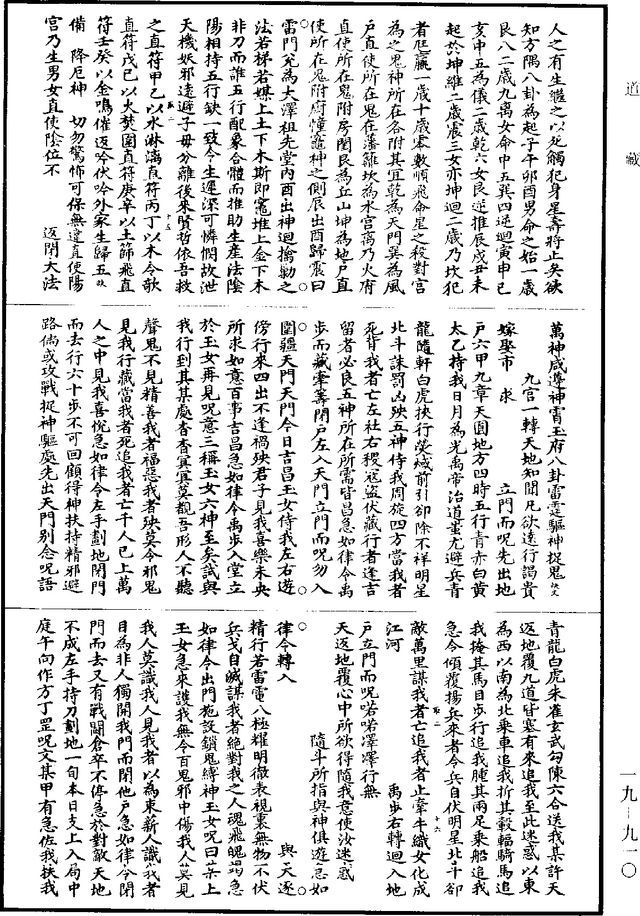 道藏
人之有生繼之以死觸犯身星壽將止矣欲
知方隅八卦為起子午卯酉男命之始一歲
艮八二歲九離女命中五巽四逆迴寅申巳
亥中五為儀二歲乾六女艮逆推辰戌丑未
起於坤維二歲震三女亦坤迴二歲乃坎犯
者尫羸一歲十歲零數順飛命星之殺對宮
為之鬼神所在各附其宜乾為天門巽為風
戶直使所在鬼在藩籬坎為水宮离乃火府
直使所在鬼附房闈艮為丘山坤為地戶直
使所在鬼附廚憧竈神之側辰出酉歸震曰
雷門兌為大澤祖先堂内酉出神迴擒勒之
法若梯若媒上土下木斯即竃堆上金下木
非刀而誰五行配象合體而推助生產法陰
陽相持五行缺一致令生遲深可憐憫故泄
天機妖邪遠避子母分離後來賢哲依吾救
之直符甲乙以水淋漓直符丙丁以木令欹
直符戊己以火焚圍直符庚辛以土篩飛直
符壬癸以金鳴催返吟伏吟外家生歸五
備 降厄神 切勿驚怖可保無違直使陽
宮乃生男女直使陰位不 返閉大法
萬神咸遵神霄玉府八卦雷霆驅神捉鬼
九宫一轉天地知聞凡欲遠行謁貴
嫁娶市 求 立門而呪先出地
戶六甲九章天圓地方四時五行青赤白黄
太乙持我日月為光禹帝治道蚩尤避兵青
龍隨軒白虎挾行熒惑前引却除不祥明星
北斗誅罰凶殃五神侍我周旋四方當我者
死背我者亡左社右稷寇盜伏藏行者逢吉
留者必良五神所在所需皆昌急如律令禹
步而藏牽籌閉戶左入天門立門而呪勿入
圉疆天門天門今日吉昌玉女侍我左右遊
傍行來四出不逢禍殃君子見我喜樂未央
所求如意百事吉昌急如律令禹步入堂立
於玉女再見呪意三稱玉女六神至矣試與
我行到其某處杳杳冥冥莫覩吾形人不聽
聲鬼不見精善我者福惡我者殃莫令邪鬼
見我行藏當我者死追我者亡千人已上萬
人之中見我喜悅急如律令左手劃地閉門
而去行六十步不可回顧得神扶持精邪避
路倘或攻戰捉神驅處先出天門别念呪語
青龍白虎朱雀玄武勾陳六合送我某許天
返地覆九道皆塞有來追我至此迷惑以東
為西以南為北乘車追我折其轂輻騎馬追
我掩其馬目步行追我腫其兩足乘船追我
急令傾覆揚兵來者令兵自伏明星北斗却
敵萬里謀我者亡追我者止牽牛織女化成
江河 禹步右轉迴入地
戶立門而呪喏喏澤澤行無
天返地覆心中所欲得隨我意使汝迷惑
隨斗所指與神俱遊急如
律令轉入 與天逐
精行若雷電八極耀明徹表視裏無物不伏
兵戈自滅謀我者絕對我之人魂飛魄竭急
如律令出門拖設鎖鬼縛神玉女呪曰
玉女急來護我無令百鬼邪中傷我人莫見
我人莫識我人見我者以為束薪人識我者
目為非人獨開我門而閉他戶急如律令閉
門而去又有戰鬬倉卒不停急於對敵天地
不成左手持刀劃地一旬本日支上入局中
庭午向作方丁罡呪文某甲有急佐我扶我
一九—九一〇